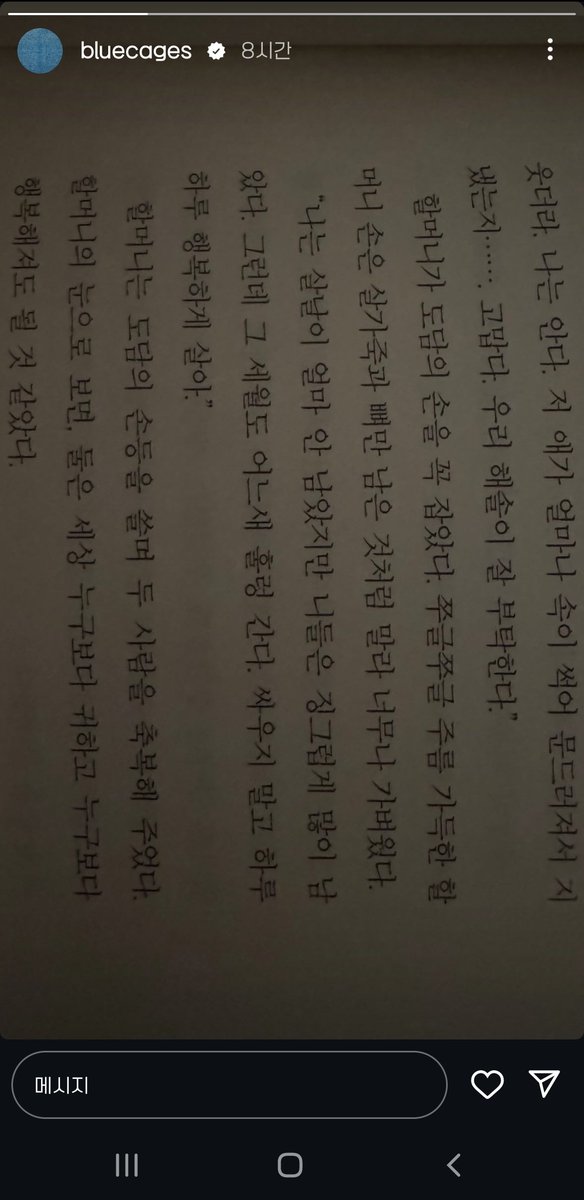 bluecages 8시간
웃더라. 나는 안다. 저 애가 얼마나 속이 썩어 문드러져서 지
냈는지……. 고맙다. 우리 해솔이 잘 부탁한다.”
할머니가 도담의 손을 꼭 잡았다. 쭈글쭈글 주름 가득한 할
머니 손은 살가죽과 뼈만 남은 것처럼 말라 너무나 가벼웠다.
“나는 살날이 얼마 안 남았지만 니들은 징그럽게 많이 남
았다. 그런데 그 세월도 어느새 훌렁 간다. 싸우지 말고 하루
하루 행복하게 살아.”
할머니는 도담의 손등을 쓸며 두 사람을 축복해 주었다.
할머니의 눈으로 보면, 둘은 세상 누구보다 귀하고 누구보다
행복해져도 될 것 같았다.
메시지